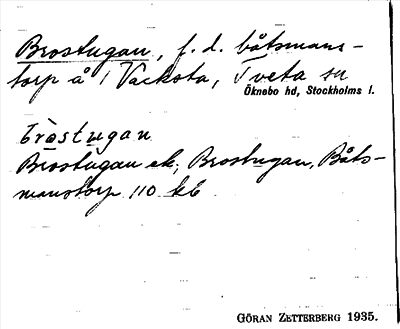 Brostugan, f. d. båtsmans-
torp å 1 Vacksta, Tveta sn
Öknebo hd, Stockholms l.
bròstugan
Brostugan ek; Brostugan, Båts-
manstorp 110 kb
GÖRAN ZETTERBERG 1935.